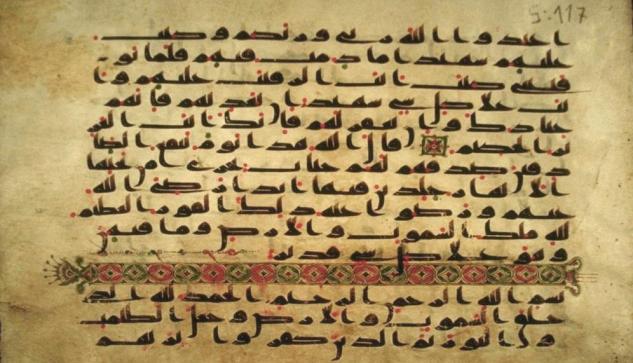 5:117
اعبدوا الله ربي وربكم وكنت
عليهم شهيدا ما دمت فيهم فلما تو
فيتني كنت انت الرقيب عليهم وا
نت على كل شي شهيد ان تعذبهم فانهم
عبادك وان تغفر لهم فانك انت العز
يز الحكيم قال الله هذا يوم ينفع الصا
دقين صدقهم لهم جنات تجري من تحتها
الانهار خلدين فيها ابدا رضي الله
عنهم ورضوا عنه ذلك الفوز العظيم
لله ملك السموت والارض وما فيهن
وهو على كل شي قدير
بسم الله الرحمن الرحيم الحمد لله الذي
خلق السموت والارض وجعل الظلمت
والنور ثم الذين كفروا